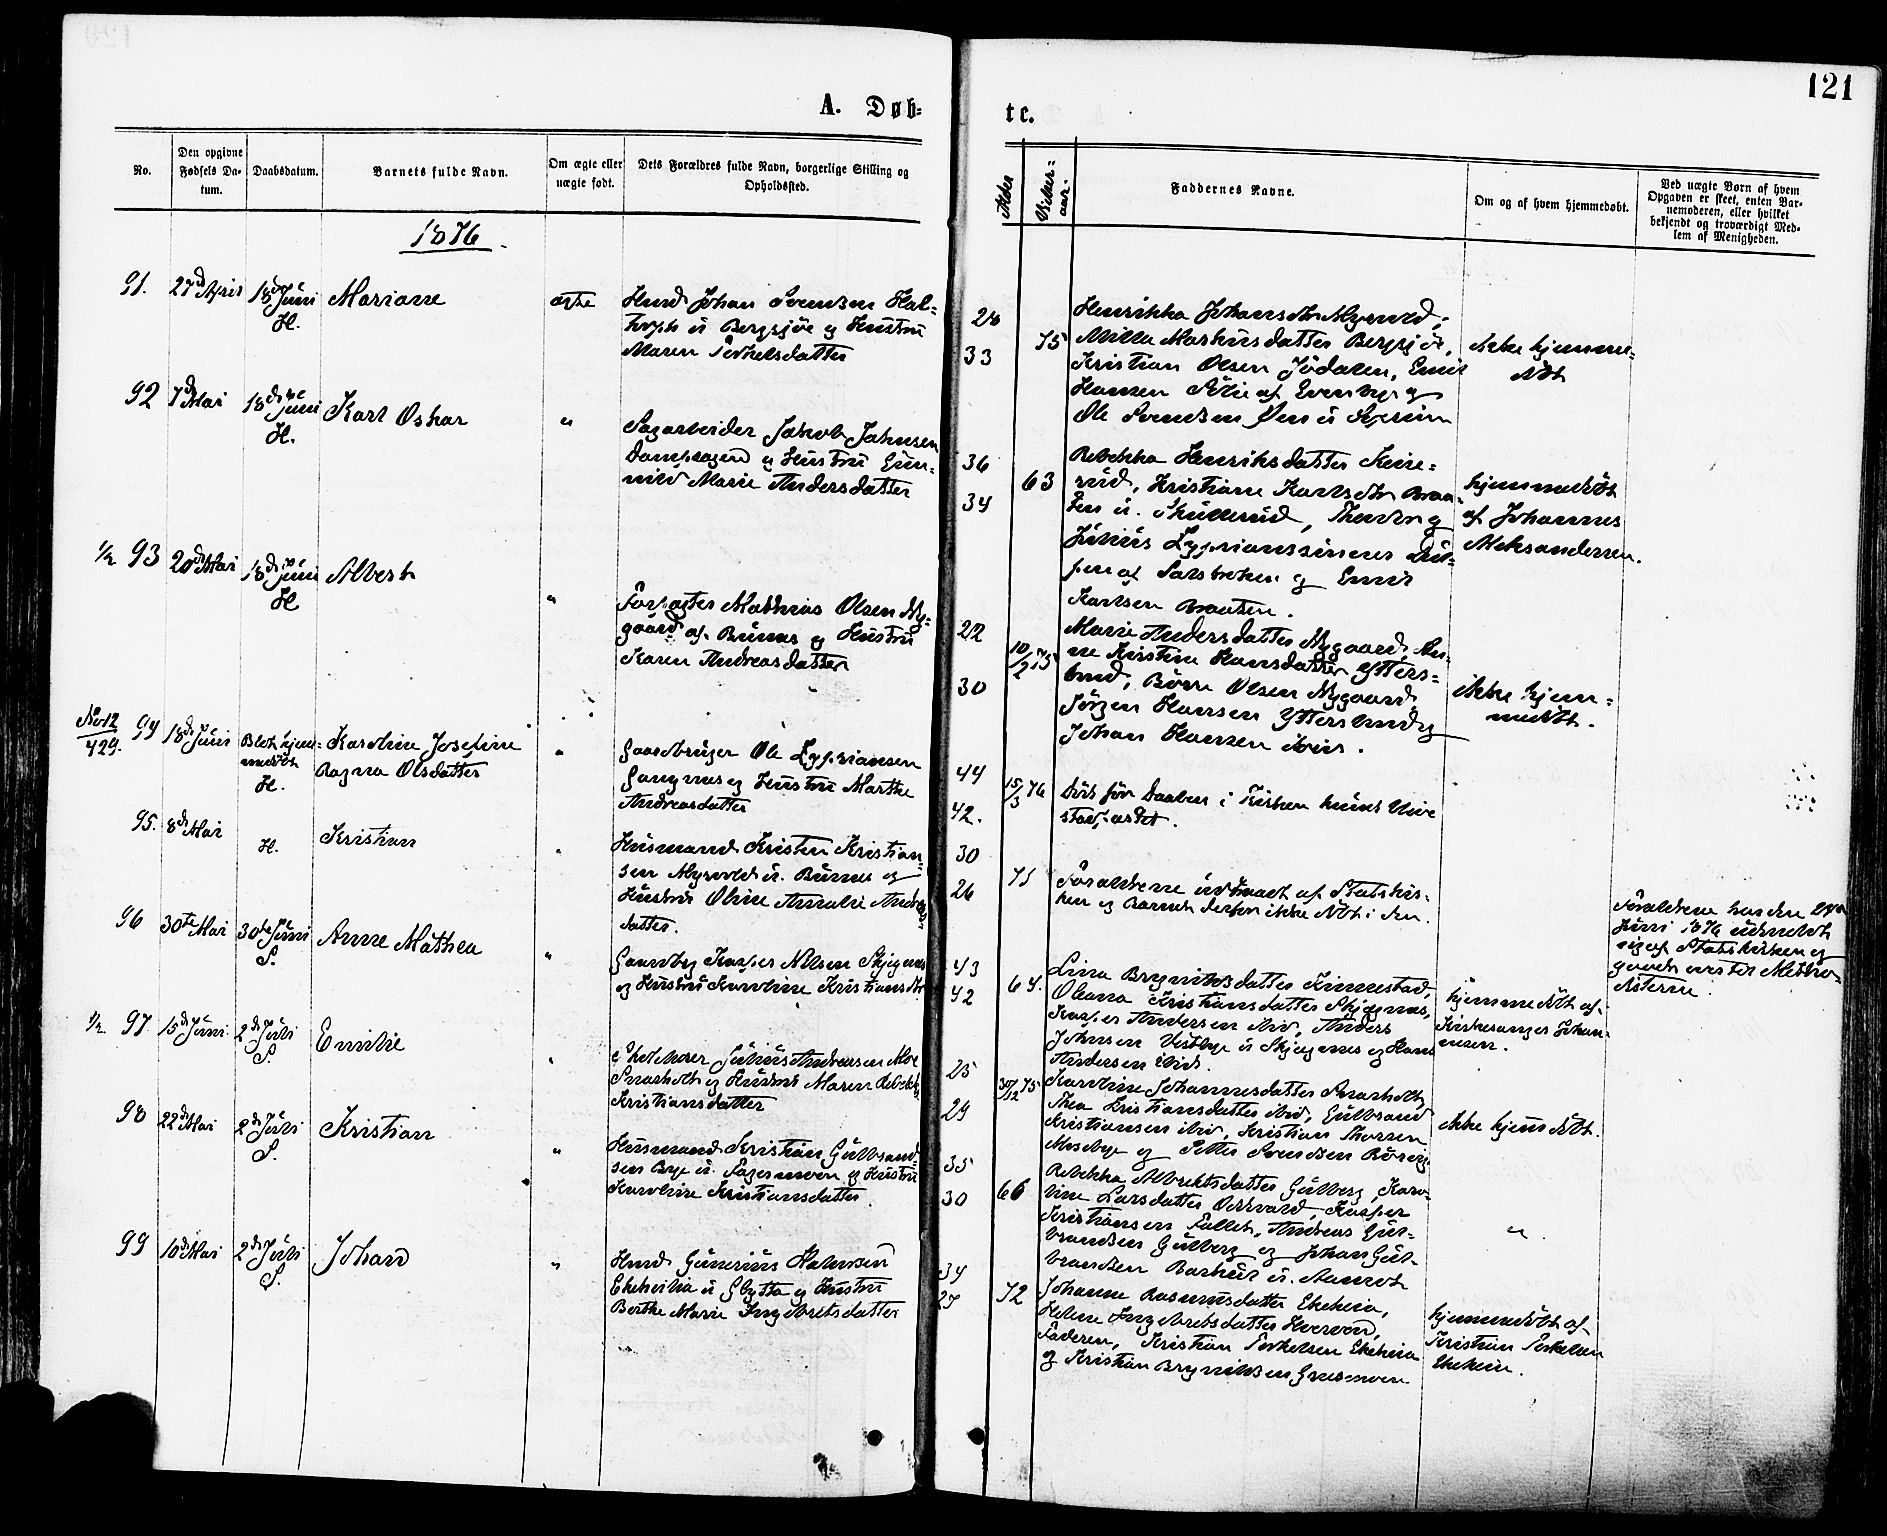 121
A. Døb=
te.
No.
Den opgivne
Fødsels Da-
tum.
Daabsdatum.
Barnets fulde Navn.
Om ægte eller
uægte født.
Dets Forældres fulde Navn, borgerlige Stilling og
Opholdssted.
Alder
Vielses=
aar.
Faddernes Navne.
Om og af hvem hjemmedøbt.
Ved uægte Børn af hvem
Opgaven er skeet, enten Bar-
nemoderen, eller hvilket
bekjendt og troværdigt Med-
lem af Menigheden.
1876.
91.
27d April
18d Juni
H.
Mariane
ægte
Husmd Johan Svendsen
u Bergsjøe og Hustru
Maren Torkelsdatter
28
33
75
Henrikka Johansdtr Myrvold,
Milla Markusdatter Bergsjøe,
Kristian Olsen Jødalen, Emil
Hansen af Evenbye og
Ole Svendsen u
ikke hjemme=
døbt
92
7d Mai
18de Juni
H.
Karl Oskar
"
Sagarbeider Jakob Johnsen
Dampsagen og Hustru Gun=
nild Marie Andersdatter
36
34
63
Rebekka Henriksdatter
rud, Kristiane Karlsdtr Braa=
ten u. Skullerud, Theodor og
Julius Cypriansønner
af og Emil
Karlsen Braaten.
hjemmedøbt
af Johannes
Aleksandersen.
1/2 93
20d Mai
18de Juni
H
Albert
"
Forpagter Mathias Olsen Ny=
gaard af Bunes og Hustru
Karen Andreasdatter
22
30
10/2 75
Marie Andersdatter Nygaard, An=
ne Kristine Hansdatter Ytters=
bud, Børre Olsen Nygaard,
Jørgen Hansen og
Johan Hansen ibid.
ikke hjem=
medøbt.
No 12
429.
94
18d Juni
Blot hjem=
medøbt
H.
Karoline Josefine
Ragna Olsdatter
"
Gaardbruger Ole Cypriansen
Gangnæs og Hustru Marthe
Andreasdatter
44
42.
15/3 76
Død før Daaben i Kirken kunde blive
stadfæstet.
95.
8d Mai
H.
Kristian
"
Husmand Kristen Kristian=
sen Myrvold u. Bunes og
Hustru Oline Amalie Andreas
datter.
30
26
75
Forældrene udtraadt af Statskir=
ken og Barnet derfor ikke døbt i den.
Forældrene har den
Juni 1876 udmeldt
sig af Statskirken og
gaaet over til Metho=
disterne.
96
30te Mai
30te Juni
S.
Anne Mathea
"
Gaardbg Kasper Nilsen Skjegnæs
og Hustru Karoline Kristiansdtr
43
42
64.
Lina Brynildsdatter Kinnestad,
Oleana Kristiansdatter Skjegnæs,
Kasper Andersen ibid, Anders
Johnsen Vestbye u Skjegnæs og Hans
Andersen ibid.
hjemmedøbt af
Kirkesanger Johan=
nesen.
1/2 97
15d Juni
2d Juli
S.
Emilie
"
Skolelærer Julius Andreasen Moe
Snarholt og Hustru Maren Rebekka
Kristiansdatter
25
29
30/12 75
Karoline Johannesdatter Snarholt,
Thea Kristiansdatter ibid, Gulbrand
Kristiansen ibid, Kristian Thorsen
Mosebye og Petter Svendsen
ikke hjemdøbt.
98
22d Mai
2d Juli
S.
Kristian
"
Husmand Kristian Gulbrand
sen Bye u. og Hustru
Karoline Kristiansdatter
35
30
66
Rebekka Albrektsdatter Gulberg, Karo=
line Larsdatter, Kasper
Kristiansen, Andreas Gul=
brandsen Gulberg og Johan Gul=
brandsen u. Aamodt
"
99
10d Mai
2d Juli
S.
Johan
"
Husmd Gunerius Halvorsen
Ekeheia u Glytta og Hustru
Berthe Marie Ingebretsdatter
34
27
72
Johanne Rasmusdatter Ekeheia,
Helene Ingebretsdatter,
Faderen, Kristian Torkelsen Ekeheia
og Kristian Brynildsen
hjemmedøbt af
Kristian Torkelsen
Ekeheia.